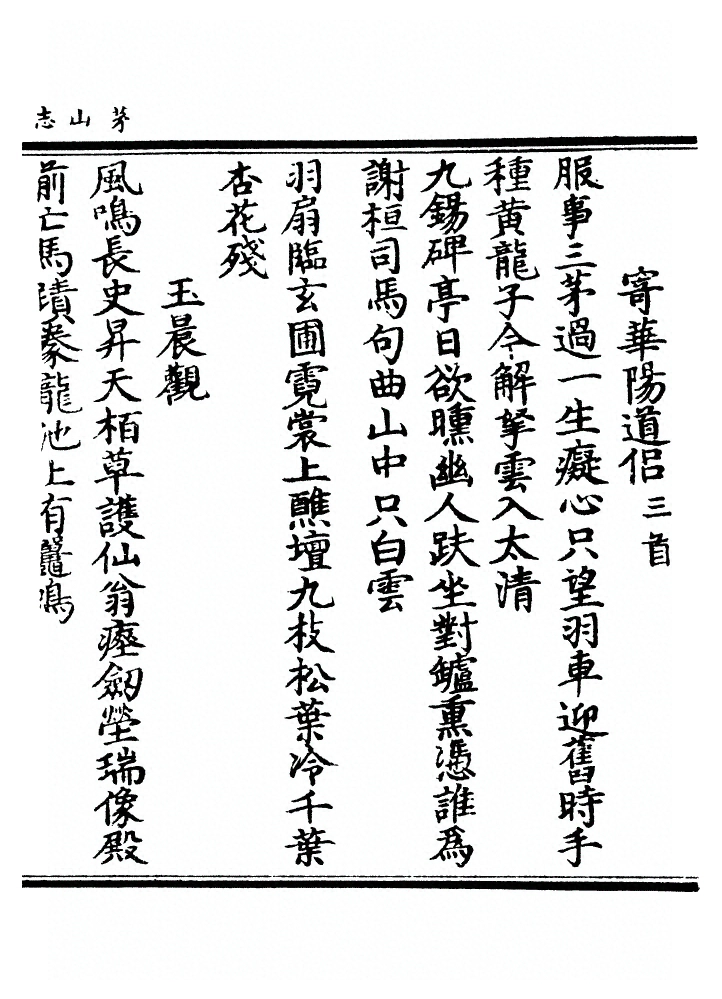 茅山志
寄華陽道侶三首
服事三茅過一生癡心只望羽車迎舊時手
種黃龍子今解拏雲入太清
九錫碑亭日欲曛幽人趺坐對鑪熏憑誰為
謝桓司馬句曲山中只白雲
羽扇臨玄圃霓裳上醮壇九枝松葉冷千葉
杏花殘
玉晨觀
風鳴長史昇天栢草護仙翁瘞劔塋瑞像殿
前亡馬蹟豢龍池上有鼉鳴